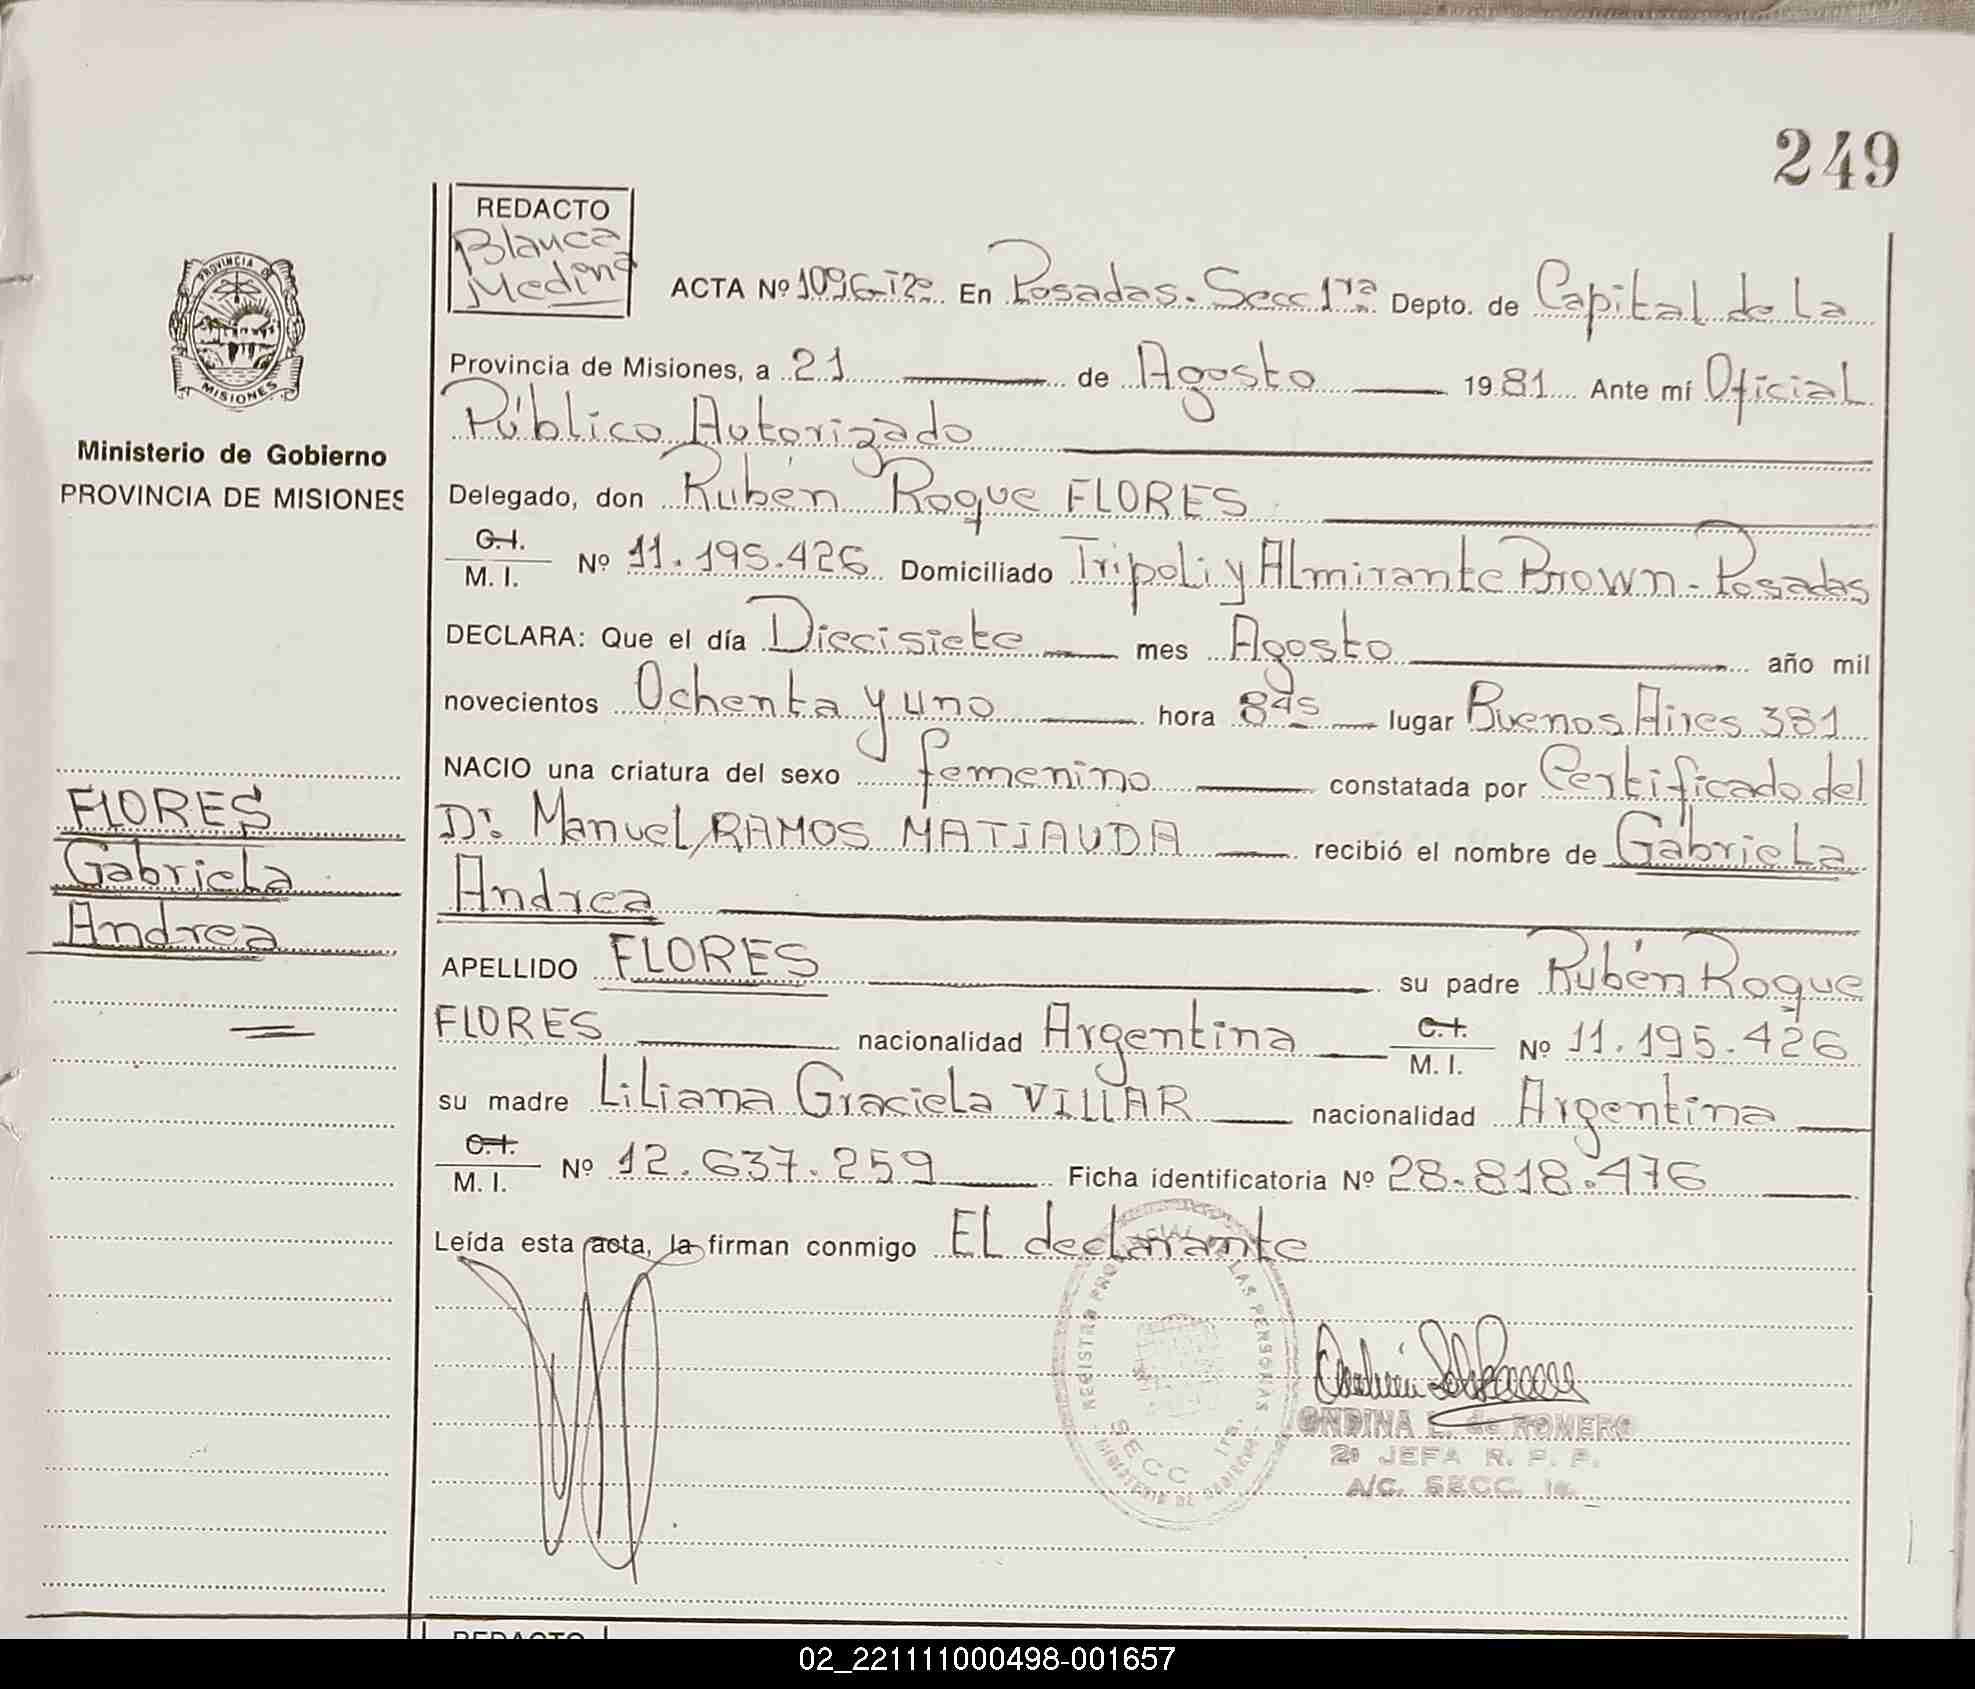 249
REDACTO
Blanca
Medina
ACTA Nº 1096-Tº2º En Posadas.Secc 1ra Depto. de Capital de La
Provincia de Misiones, a 21 de Agosto 1981 Ante mí Oficial
Público Autorizado
Delegado, don Rubén Roque FLORES
C.I.
M. I. Nº 11.195.426 Domiciliado Tripoli y Almirante Brown-Posadas
DECLARA: Que el día Diecisiete mes Agosto año mil
novecientos Ochenta y uno hora 845 lugar Buenos Aires 381
NACIO una criatura del sexo femenino constatada por Certificado del
Dr. Manuel RAMOS MATIAUDA recibió el nombre de Gabriela
Andrea
APELLIDO FLORES su padre Rubén Roque
FLORES nacionalidad Argentina C.I.
M. I. Nº 11.195.426
su madre Liliana Graciela VILLAR nacionalidad Argentina
C.I.
M. I. Nº 12.637.259 Ficha identificatoria Nº 28.818.476
Leída esta acta, la firman conmigo El declarante
PROVINCIA DE
MISIONES
Ministerio de Gobierno
PROVINCIA DE MISIONES
FLORES
Gabriela
Andrea
REGISTRO PROVINCIAL DE LAS PERSONAS
SECC 1ra.
MINISTERIO DE GOBIERNO
ONDINA L. de ROMERO
2º JEFA R. P. P.
A/C. SECC. 1a.
REDACTO
02_221111000498-001657